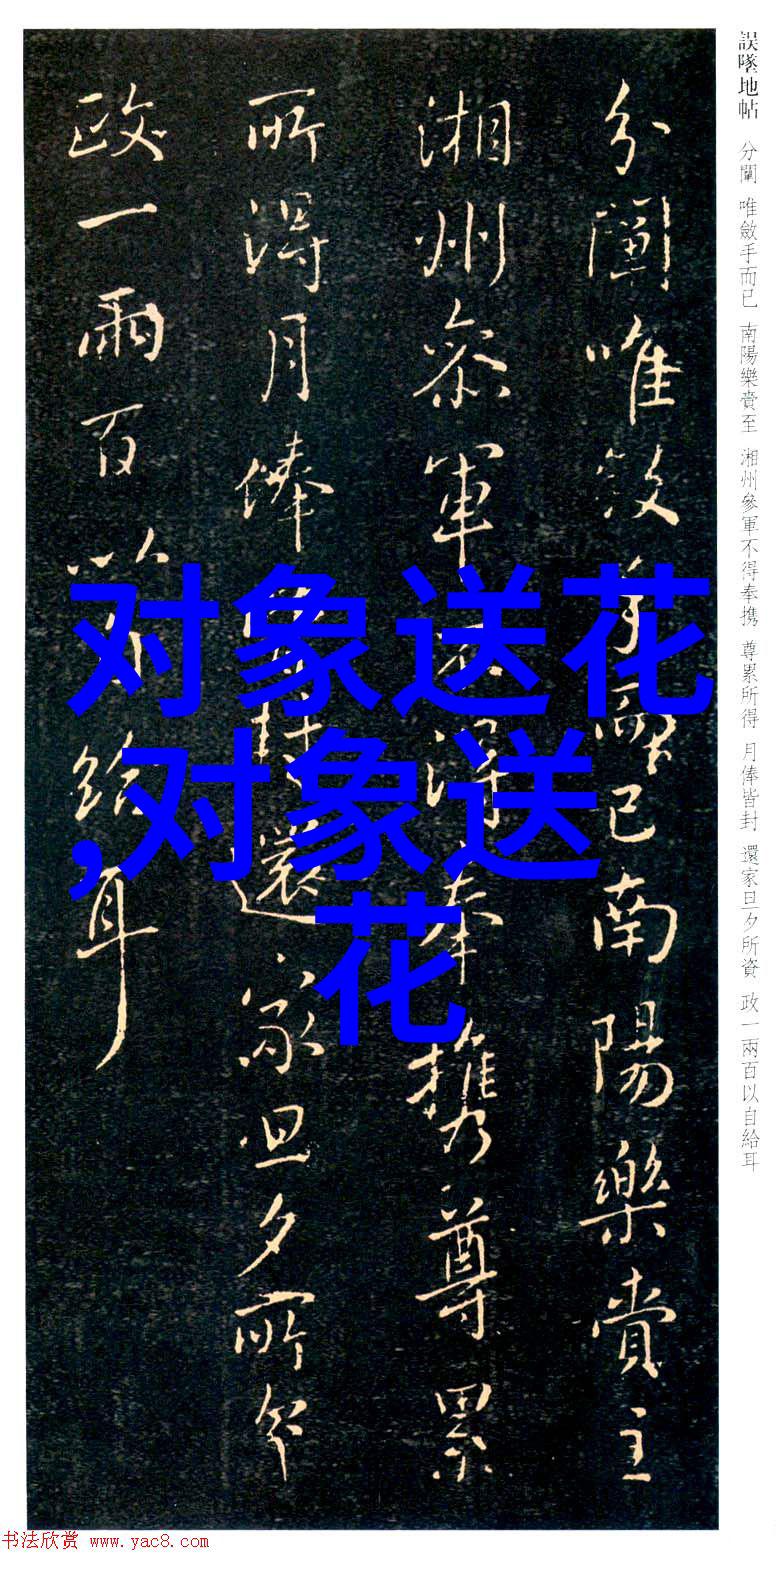 誤墜地帖 分闡 唯斂手而已 南陽樂賁至 湘州參軍不得奉携 尊累所得 月俸皆封 還家旦夕所資 政一兩百以自給耳
分闡唯斂手而已南陽樂賁至
湘州參軍不得奉携尊累
所得月俸皆封還家旦夕所資
政一兩百以自給耳
对象送花
,对象送
花
书法欣赏 www.yac8.com